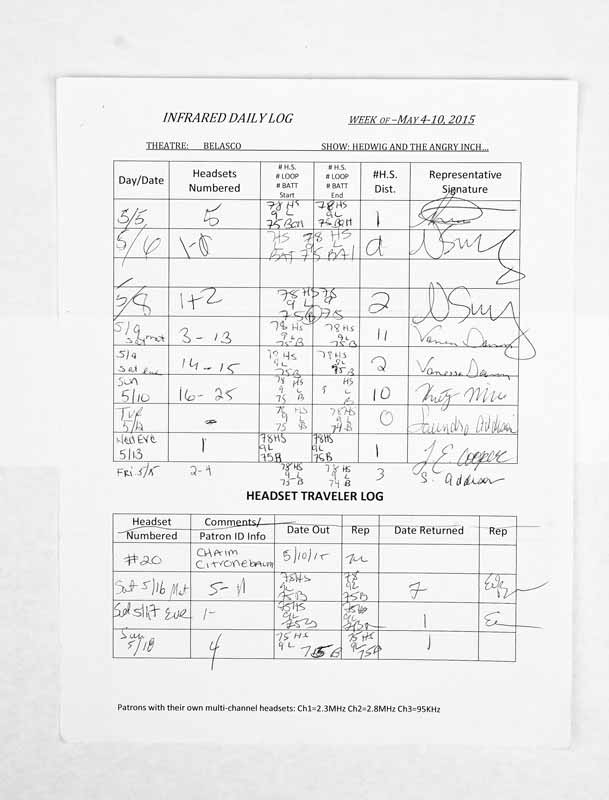 INFRARED DAILY LOG WEEK OF –MAY 4-10, 2015
THEATRE: BELASCO SHOW: HEDWIG AND THE ANGRY INCH...
Day/Date Headsets Numbered # H.S. # LOOP # BATT Start # H.S. # LOOP # BATT End #H.S. Dist. Representative Signature
5/5 5 78 HS 9 L 75 BaH 78 HS 9 L 75 BaH 1
5/6 HS BAT 78 HS 9L 75 BAT
5/8 1+2 78 HS 9 L 75 78 9 75 2
5/9 Sat mat 3 - 13 78 HS 9L 75 B 78 HS 9L 75 B 11
5/9 Sat eve 14 - 15 78 HS 9 L 75 B 78 HS 9L 75 B 2
Sun 5/10 16 - 25 78 HS 9 L 75 B 9 L 75 B 10
Tue 5/12 - 78 HS 9 L 75 B 78 HS 9 L 74 B 0 Saundra Addison
Wed Eve 5/13 1 78 HS 9L 75B 78 HS 9L 75B 1 J. E. Cooper
FRi. 5/15 2-4 78 HS 9 L 75 B 78 HS 9 L 74 B 3 S. Addison
HEADSET TRAVELER LOG
Headset Numbered Comments/ Patron ID Info Date Out Rep Date Returned Rep
#20 CHAIM CITRONEBAUM 5/10/15
Sat 5/16 Mat 5- 78 HS 9L 75B 78 9L 75B 7
Eve 1- 9L 75B 1
Sun 5/18 4 75 HS 9 L 75 B 75 HS 9L 75B 1
Patrons with their own multi-channel headsets: Ch1=2.3MHz Ch2=2.8MHz Ch3=95KHz